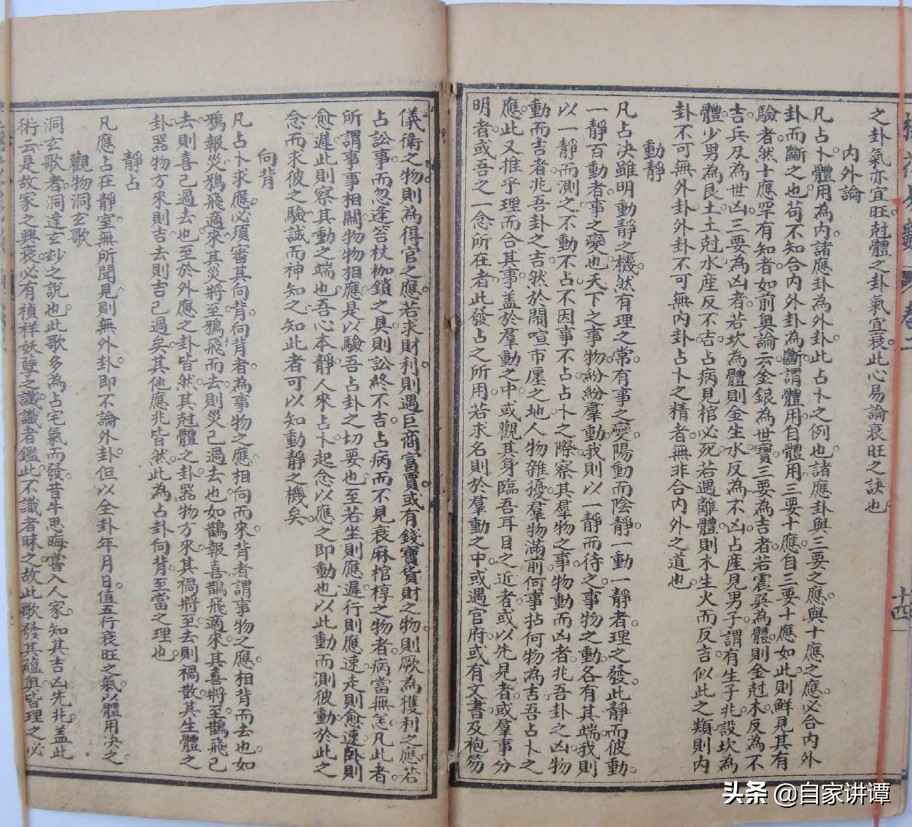 之卦氣亦宜旺尅體之卦氣宜衰此心易論衰旺之訣也
內外論
凡占卜體用為內諸應卦為外卦此占卜之例也諸應卦與三要之應與十應之應必合內外
卦而斷之也苟不知合內外卦為斷謂體用自體用三要十應自三要十應如此則鮮見其有
驗者然十應罕有知者如前奧論云金銀為世寶三要為吉者若震巽為體則金尅木反為不
吉兵刃為世凶三要為凶者若坎為體則金生水反為不凶占產見男子謂有生子兆設坎為
體少男為艮土土尅水產反不吉占病見棺必死若遇離體則木生火而反吉似此之類則內
卦不可無外卦外卦不可無內卦占卜之精者無非合內外之道也
動靜
凡占決雖明動靜之機然有理之常有事之變陽動而陰靜一動一靜者理之發此靜而彼動
一靜百動者事之變也天下之事物紛紛羣動我則以一靜而待之事物之動各有其端我則
以一靜而測之不動不占不因事不占占卜之際察其羣物之事物動而凶者兆吾卦之凶物
動而吉者兆吾卦之吉然於閙喧市廛之地人物雜擾羣物滿前何事拈何物為吉吾占卜之
應此又推乎理而合其事蓋於羣動之中或觀其身臨吾耳目之近者或以先見者或羣事分
明者或吾之一念所在者此發占之所用若求名則於羣動之中或遇官府或有文書及袍笏
儀衛之物則為得官之應若求財利則遇巨商富賈或有錢寶貨財之物則厥為獲利之應若
占訟事而忽逢笞杖枷鎖之具則訟終不吉占病而不見衰麻棺椁之物者病當無恙凡此者
所謂事事相關物物相應是以驗吾占卦之切要也至若坐則應遲行則應速走則愈速卧則
愈遲此則察其動之端也吾心本靜人來占卜起念以應之即動也以此動而測彼動於此之
念而求彼之驗誠而神知之知此者可以知動靜之機矣
向背
凡占卜求應必須審其向背向者為事物之應相向而來背者謂事物之應相背而去也如
鴉報災鴉飛適來其災將至鴉飛而去則災已過去也如鵲報喜鵲飛適來其喜將至鵲飛已
去則喜已過去也至於外應之卦皆然其尅體之卦器物方來其禍將至去則禍散其生體之
卦器物方來則吉去則吉已過矣其他應兆皆然此為占卦向背至當之理也
靜占
凡應占在靜室無所聞見則無外卦即不論外卦但以全卦年月日值五行衰旺之氣以體用決之
觀物洞玄歌
洞玄歌者洞達玄玅之說也此歌多為占宅氣而發昔牛思晦嘗入人家知其吉凶先兆蓋此
術云是故家之興衰必有禎祥妖孽之讖識者鑑此不識者昧之故此歌發其蘊奧皆理之必
卷二
十四
头条 @自家讲谭